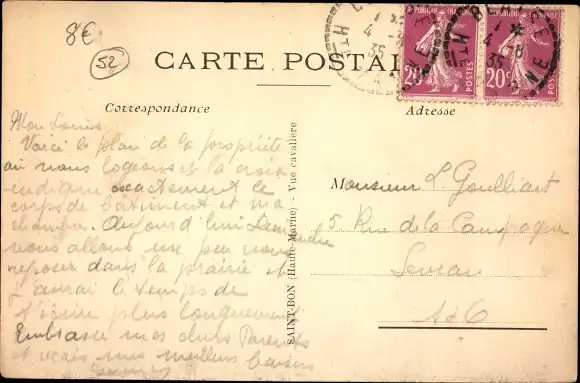 8€
52
CARTE POSTALE
Correspondance
Adresse
Mon Louis
Voici le plan de la propriété
où nous logeons et la croix
indique exactement le
corps de bâtiment et ma
chambre. Aujourd'hui Dimanche
nous allons un peu nous
reposer dans la prairie et
j'aurai le temps de
t'écrire plus longuement
Embrasse mes chers Parents
et vrais mes meilleurs baisers
SAINT-BON (Haute-Marne) - Vue cavalière
Monsieur L. Goulliart
5 Rue de la Campagne
Sevran
S & O
RÉPUBLIQUE FRANÇAISE
20c
POSTES
RÉPUBLIQUE FRANÇAISE
20c
POSTES
4 - 8
35
HTE
MNE